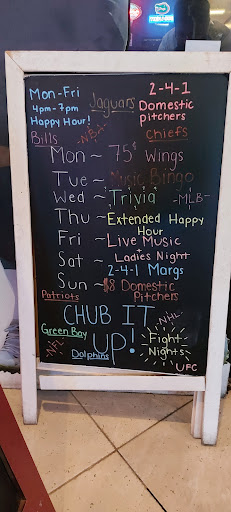 Mon-Fri
4pm-7pm
Happy Hour!
Jaguars
2-4-1
Domestic
pitchers
Bills
-NBA-
Chiefs
Mon ~ 75¢ Wings
Tue ~ Music Bingo
Wed ~ Trivia -MLB-
Thu ~ Extended Happy
Hour
Fri ~ Live Music
Sat ~ Ladies Night
2-4-1 Margs
Sun ~ $8 Domestic
Pitchers
Patriots
CHUB IT
UP!
-NHL-
Green Bay
-NFL-
Dolphins
Fight
Nights
UFC